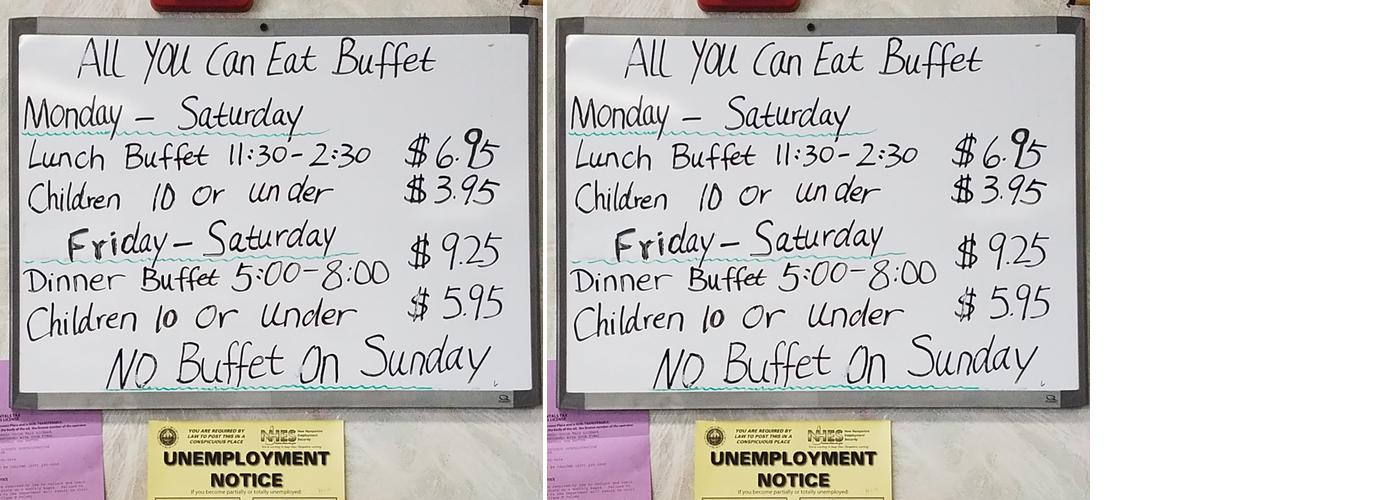 All You Can Eat Buffet
Monday - Saturday
Lunch Buffet 11:30-2:30 $6.95
Children 10 Or under $3.95
Friday - Saturday
Dinner Buffet 5:00-8:00 $9.25
Children 10 Or Under $5.95
NO Buffet On Sunday
YOU ARE REQUIRED BY
LAW TO POST THIS IN A
CONSPICUOUS PLACE
NHES
New Hampshire
Employment
Security
UNEMPLOYMENT
NOTICE
If you become partially or totally unemployed:
All You Can Eat Buffet
Monday - Saturday
Lunch Buffet 11:30-2:30 $6.95
Children 10 Or under $3.95
Friday - Saturday
Dinner Buffet 5:00-8:00 $9.25
Children 10 Or Under $5.95
NO Buffet On Sunday
YOU ARE REQUIRED BY
LAW TO POST THIS IN A
CONSPICUOUS PLACE
NHES
New Hampshire
Employment
Security
UNEMPLOYMENT
NOTICE
If you become partially or totally unemployed: